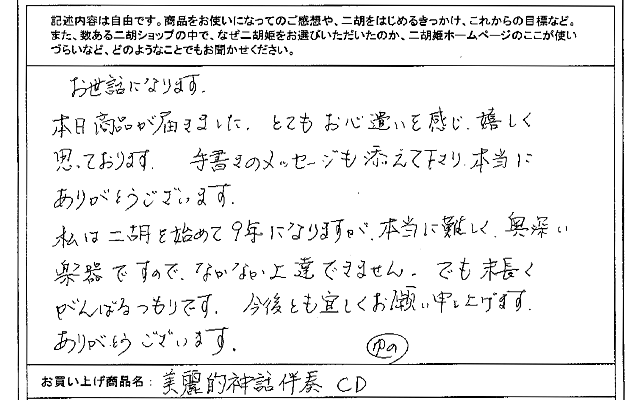 記述内容は自由です。商品をお使いになってのご感想や、二胡をはじめるきっかけ、これからの目標など。
また、数ある二胡ショップの中で、なぜ二胡姫をお選びいただいたのか、二胡姫ホームページのここが使い
づらいなど、どのようなことでもお聞かせください。
お世話になります。
本日商品が届きました。とてもお心遣いを感じ、嬉しく
思っております。手書きのメッセージも添えて下さり、本当に
ありがとうございます。
私は二胡を始めて9年になりますが、本当に難しく、奥深い
楽器ですので、なかなか上達できません。でも末長く
がんばるつもりです。今後とも宜しくお願い申し上げます。
ありがとうございます。
お買い上げ商品名：美麗的神話伴奏 CD